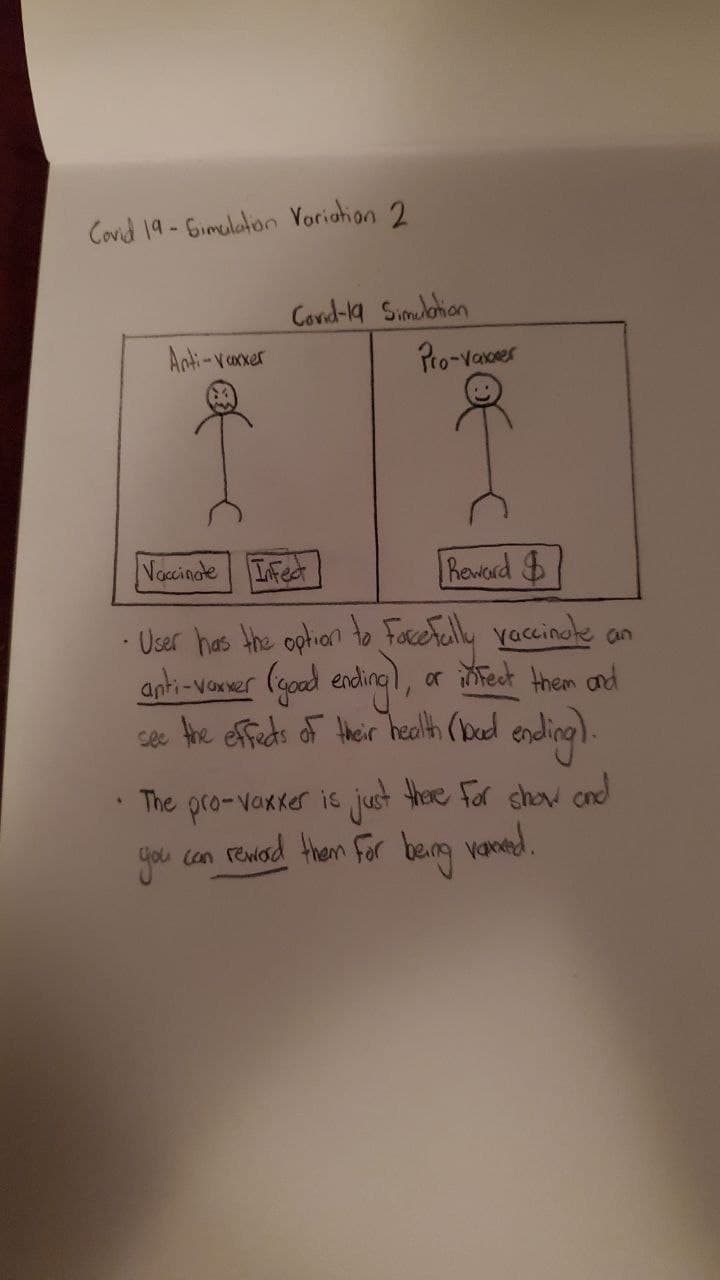 Covid 19 - Simulation Variation 2
Covid-19 Simulation
Anti-vaxxer
Pro-vaxxer
Vaccinate
Infect
Reward $
• User has the option to forcefully vaccinate an
anti-vaxxer (good ending), or infect them and
see the effects of their health (bad ending).
• The pro-vaxxer is just there for show and
you can reward them for being vaxxed.